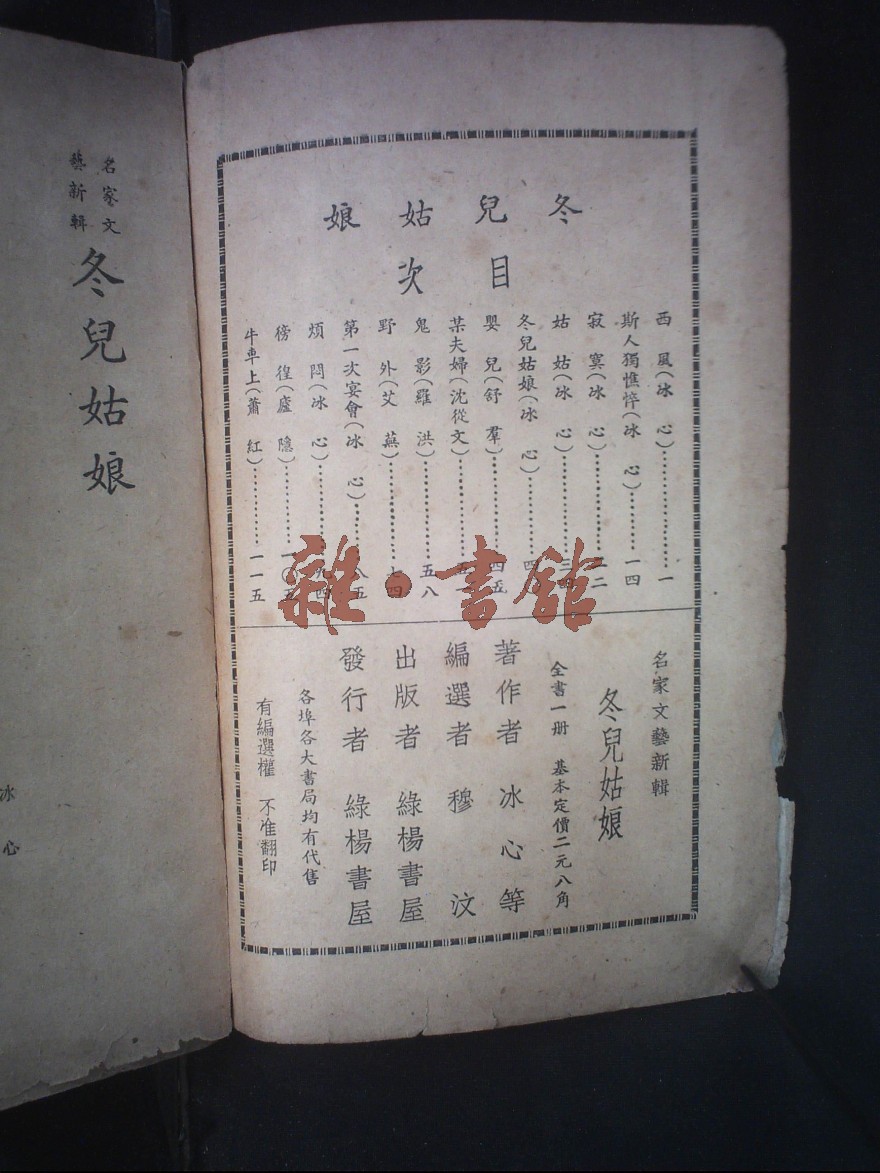 冬兒姑娘
目次
西風(冰心)⋯⋯⋯⋯⋯⋯一
斯人獨憔悴(冰心)⋯⋯⋯⋯一四
寂寞(冰心)⋯⋯⋯⋯二二
姑姑(冰心)⋯⋯⋯⋯三四
冬兒姑娘(冰心)⋯⋯⋯⋯四
嬰兒(舒羣)⋯⋯⋯⋯四五
某夫婦(沈從文)⋯⋯⋯⋯五
鬼影(羅洪)⋯⋯⋯⋯五八
野外(艾蕪)⋯⋯⋯⋯七四
第一次宴會(冰心)⋯⋯⋯⋯八五
煩悶(冰心)⋯⋯⋯⋯九四
徬徨(廬隱)⋯⋯⋯⋯一〇五
牛車上(蕭紅)⋯⋯⋯⋯一一五
名家文藝新輯
冬兒姑娘
全書一册 基本定價二元八角
著作者 冰心等
編選者 穆汶
出版者 綠楊書屋
發行者 綠楊書屋
各埠各大書局均有代售
有編選權 不准翻印
名家文
藝新輯
冬兒姑娘
冰心
雜·書館